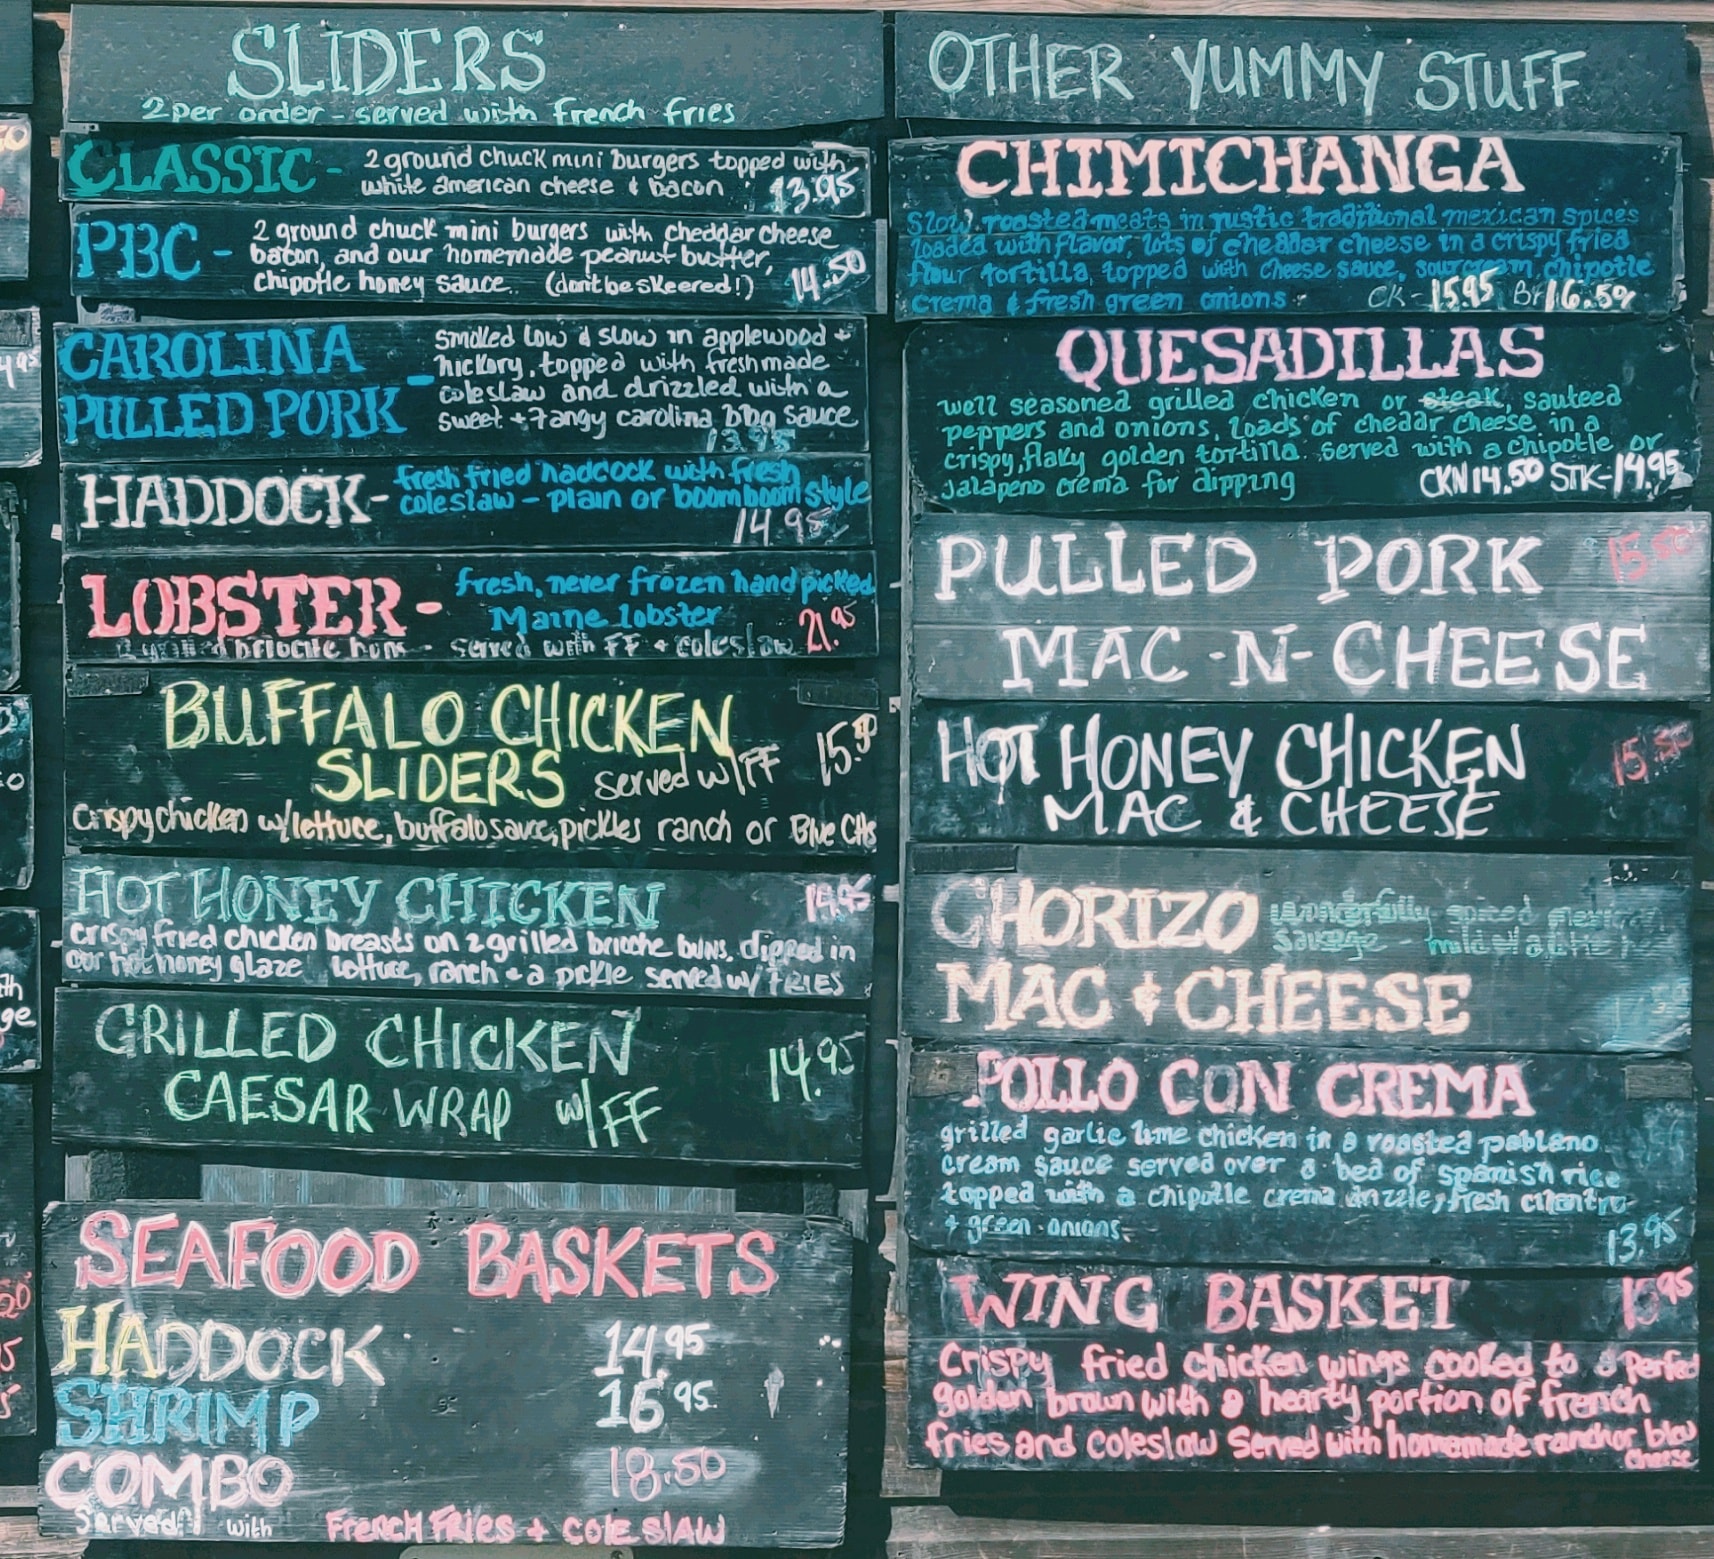 SLIDERS
2 per order - served with french fries
CLASSIC - 2 ground chuck mini burgers topped with
white american cheese & bacon 13.95
PBC - 2 ground chuck mini burgers with cheddar cheese
bacon, and our homemade peanut butter,
chipotle honey sauce.. (don't be skeered!) 14.50
CAROLINA
PULLED PORK -
smoked low & slow in applewood +
hickory, topped with fresh made
coleslaw and drizzled with a
sweet + tangy carolina bbq sauce
13.95
HADDOCK - fresh fried haddock with fresh
coleslaw - plain or boom boom style
14.95
LOBSTER - fresh, never frozen hand picked
Maine lobster 21.95
served with FF + coleslaw
BUFFALO CHICKEN
SLIDERS served w/FF 15.50
Crispy chicken w/lettuce, buffalo sauce, pickles ranch or Blue Chs
HOT HONEY CHICKEN 14.95
crispy fried chicken breasts on 2 grilled brioche buns, dipped in
our hot honey glaze lettuce, ranch + a pickle served w/ FRIES
GRILLED CHICKEN
CAESAR WRAP w/FF 14.95
SEAFOOD BASKETS
HADDOCK 14.95
SHRIMP 16.95
COMBO 18.50
Served with FRENCH FRIES + COLE SLAW
OTHER YUMMY STUFF
CHIMICHANGA
Slow roasted meats in rustic traditional mexican spices
loaded with flavor, lots of cheddar cheese in a crispy fried
flour tortilla, topped with cheese sauce, sour cream, chipotle
crema & fresh green onions CK - 15.95 BF 16.50
QUESADILLAS
well seasoned grilled chicken or steak, sauteed
peppers and onions, loads of cheddar cheese in a
crispy, flaky golden tortilla. served with a chipotle or
jalapeno crema for dipping CKN 14.50 STK - 14.95
PULLED PORK 15.50
MAC -N- CHEESE
HOT HONEY CHICKEN 15.50
MAC & CHEESE
CHORIZO wonderfully spiced
sausage -
MAC & CHEESE
POLLO CON CREMA
grilled garlic lime chicken in a roasted poblano
cream sauce served over a bed of spanish rice
topped with a chipotle crema drizzle, fresh cilantro
+ green onions. 13.95
WING BASKET
Crispy fried chicken wings cooked to a perfect
golden brown with a hearty portion of french
fries and coleslaw Served with homemade ranch or blew
cheese